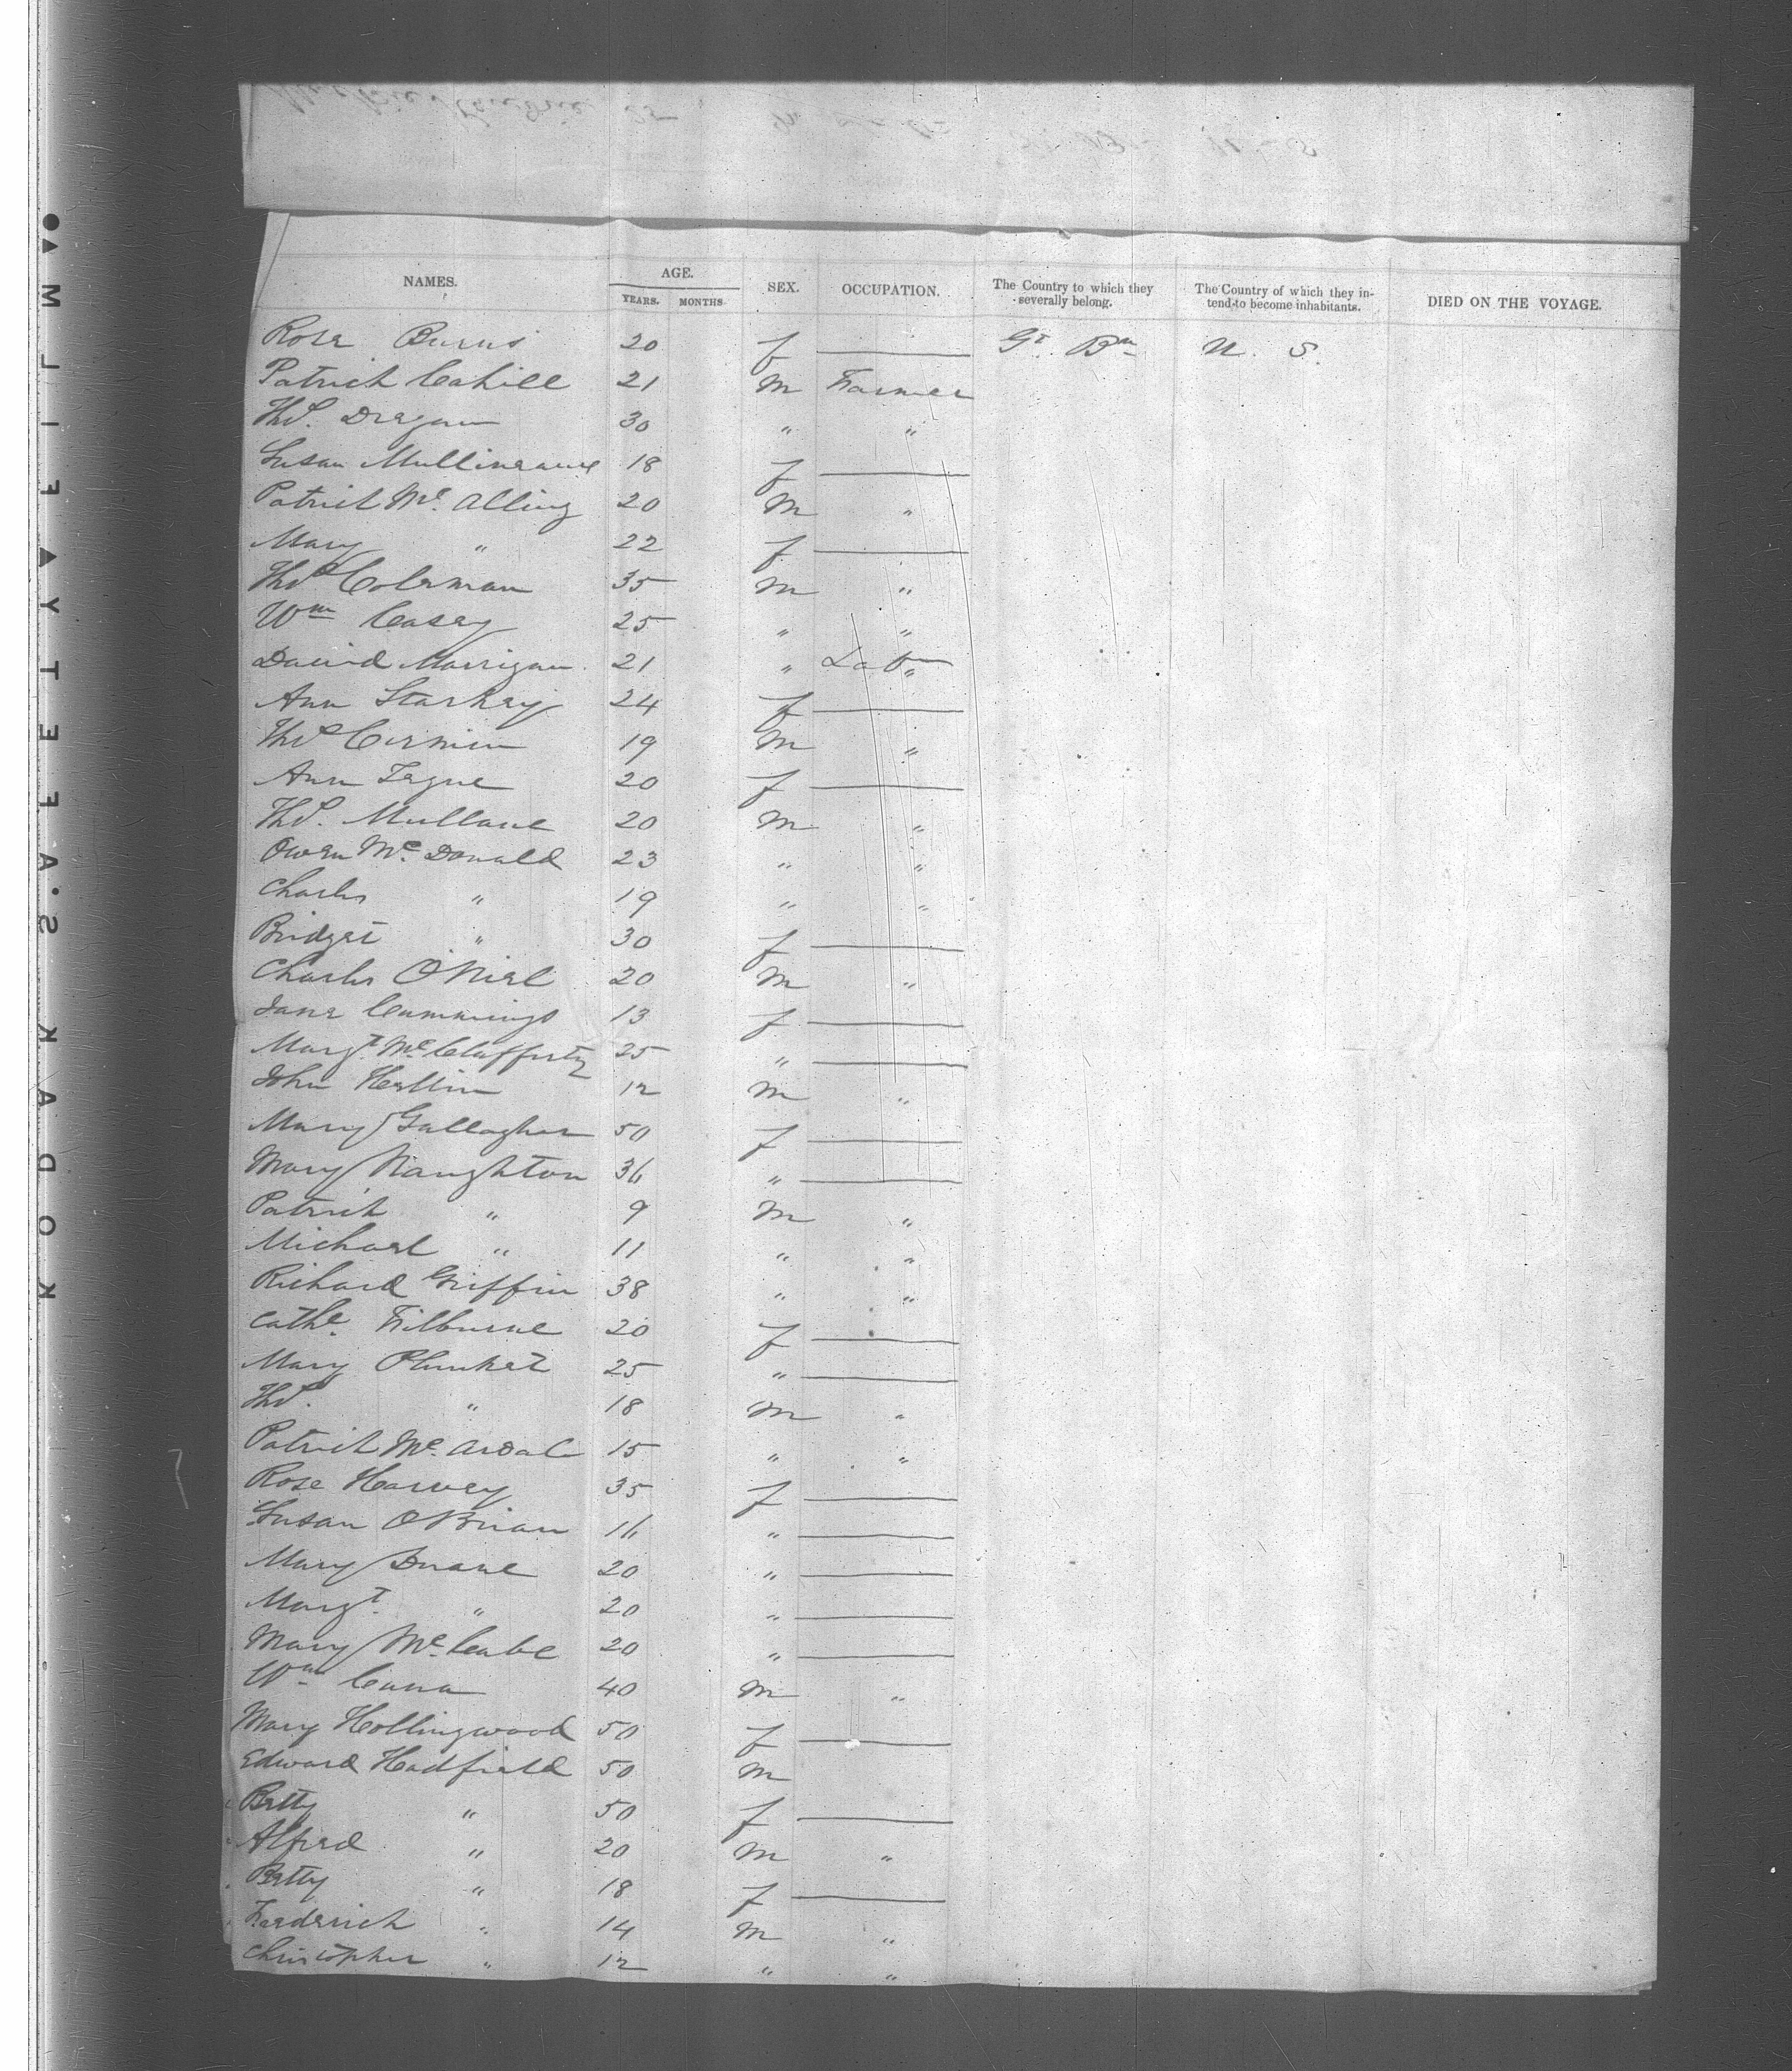 NAMES. AGE. SEX. OCCUPATION. The Country to which they severally belong. The Country of which they intend to become inhabitants. DIED ON THE VOYAGE.
YEARS. MONTHS
Rose Burns 20 f — Gt. Bn U. S.
Patrick Cahill 21 m Farmer
Thos. 30 " "
Susan 18 f —
Patrick Mc. Alling 20 m "
Mary " 22 f —
Thos Coleman 35 m "
Wm Casey 25 " "
David Marrigan 21 " Labr "
Ann Starkey 24 f —
Thos 19 m "
Ann Tague 20 f —
Thos. Mullane 20 m "
Owen Mc. Donald 23 " "
Charles " 19 " "
Bridget " 30 f —
Charles O'Niel 20 m "
Jane Cummings 13 f —
Margt. Mc Clafferty 25 " —
John 12 m "
Mary Gallagher 50 f —
Mary Naughton 36 " —
Patrick " 9 m "
Michael " 11 " "
Richard Griffin 38 " "
Cathe. Filburne 20 f —
Mary Plunket 25 " —
Thos. " 18 m "
Patrick Mc. Ardal 15 " "
Rose Harvey 35 f —
Susan O Brian 16 " —
Mary Duane 20 " —
Margt. " 20 " —
Mary Mc. Cabe 20 " —
Wm 40 m "
Mary Hollingwood 50 f —
Edward Hadfield 50 m
Betty " 50 f —
Alfred " 20 m "
Betty " 18 f —
Frederick " 14 m "
Christopher " 12 " "
KODAK·S·A·F·E·T·Y FILM